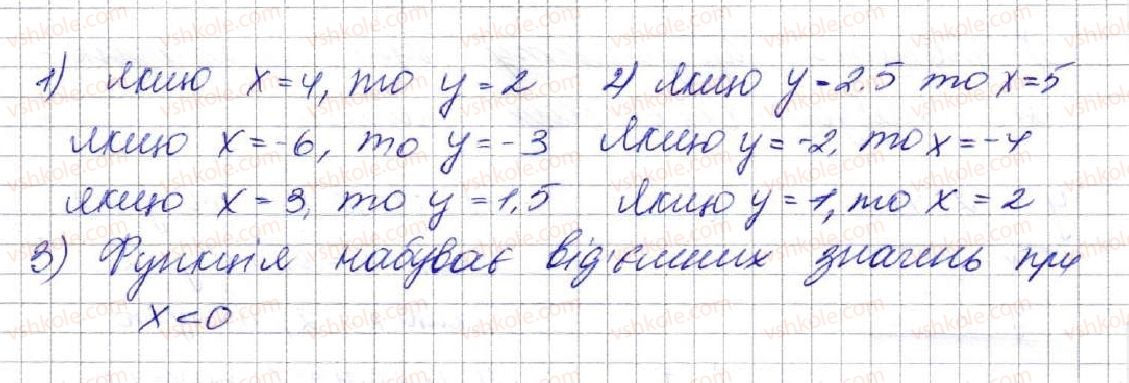 1) якщо x=4, то y=2 2) якщо y=2.5 то x=5
якщо x=-6, то y=-3 якщо y=-2, то x=-4
якщо x=3, то y=1,5 якщо y=1, то x=2
3) Функція набуває від'ємних значень при
x<0